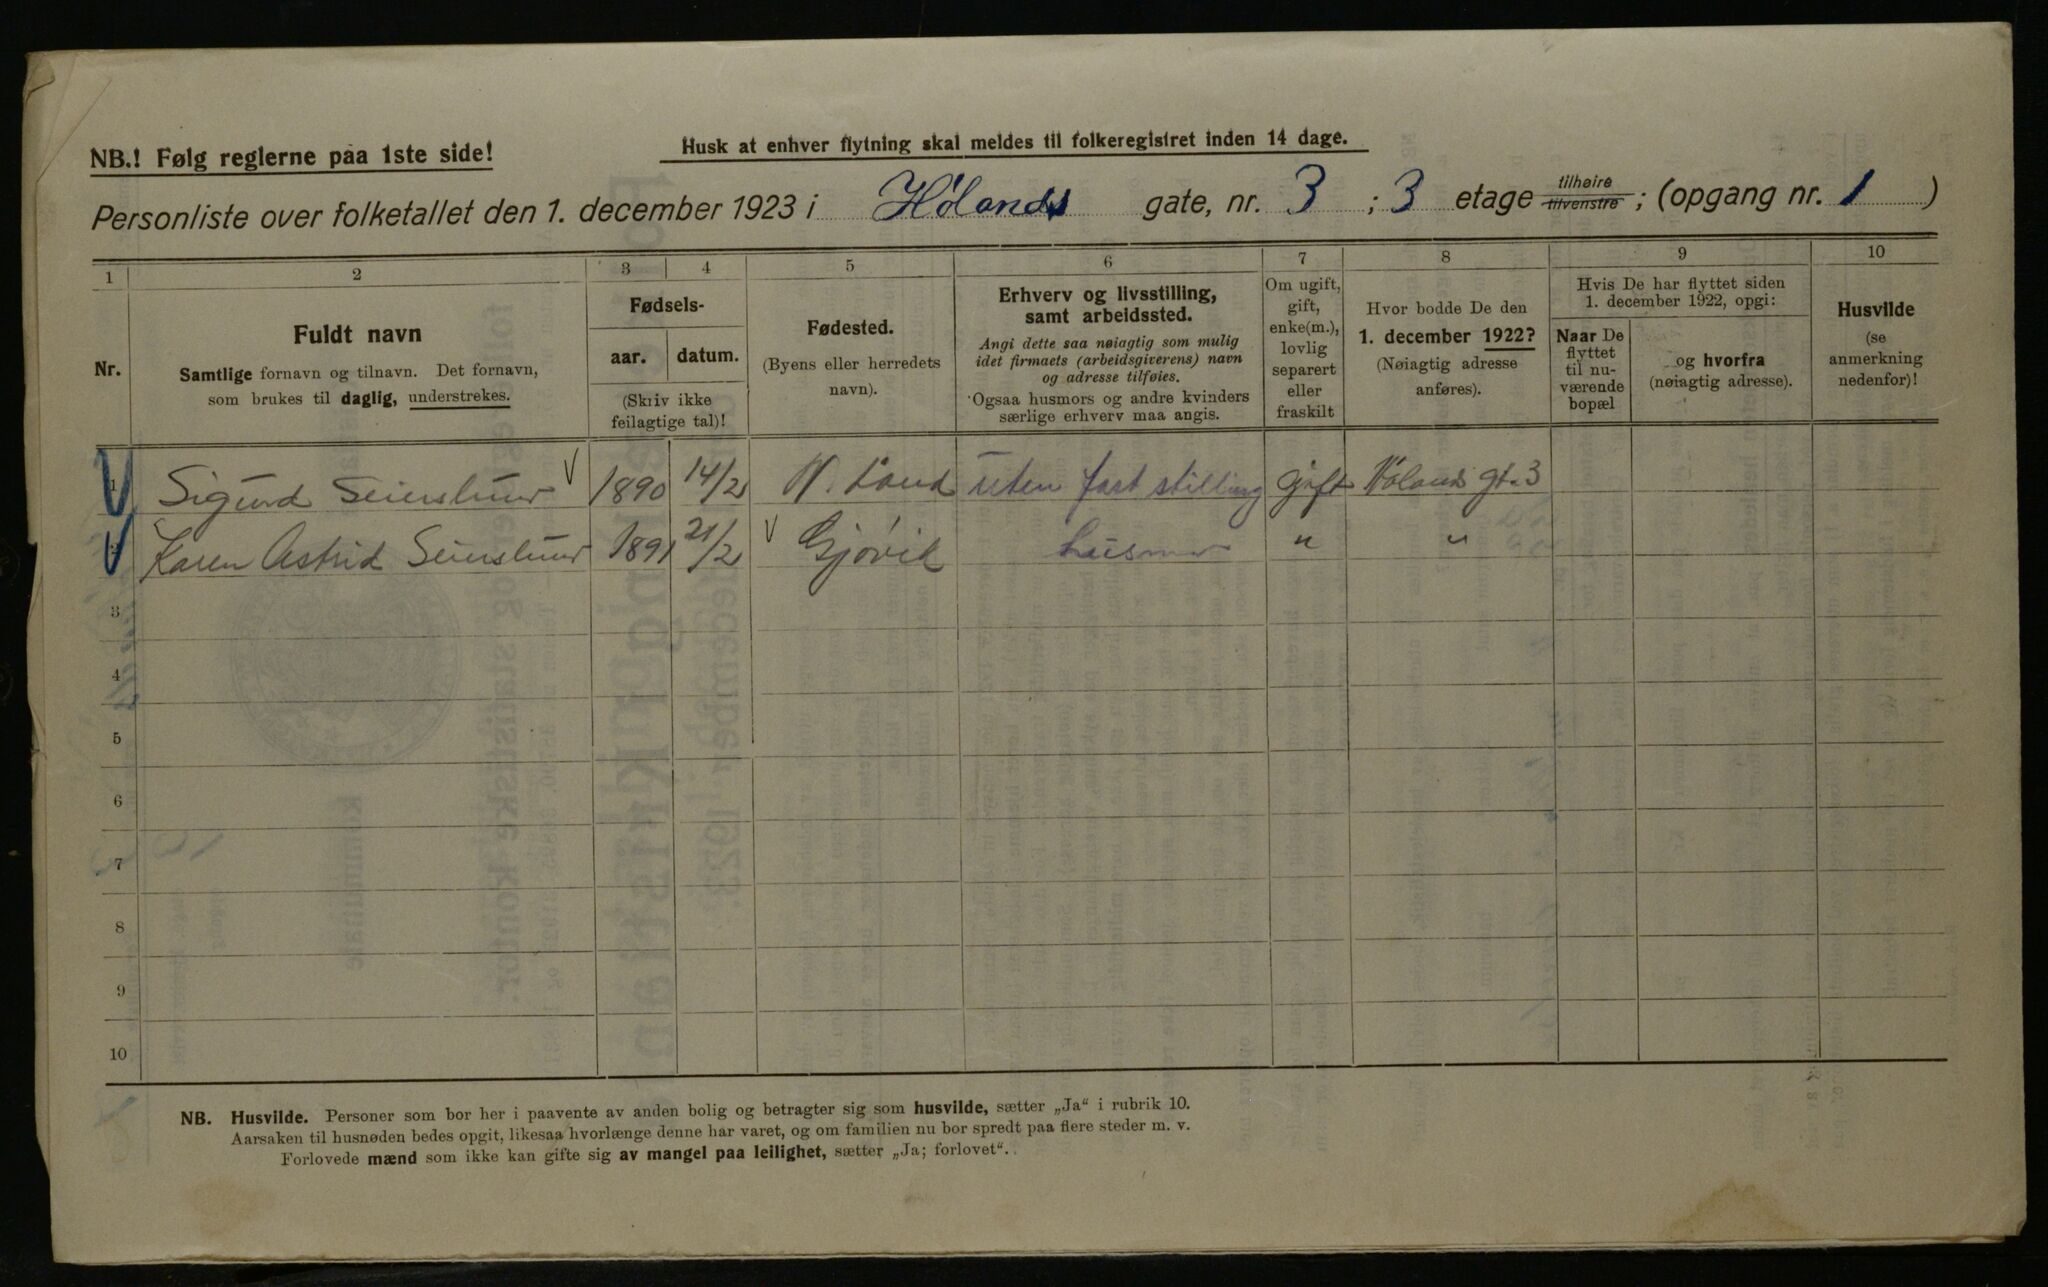 NB.! Følg reglerne paa 1ste side!
Husk at enhver flytning skal meldes til folkeregistret inden 14 dage.
Personliste over folketallet den 1. december 1923 i Hølands gate, nr. 3 ; 3 etage tilhøire tilvenstre ; (opgang nr. 1 )
1 2 3 4 5 6 7 8 9 10
Nr.
Fuldt navn
Samtlige fornavn og tilnavn. Det fornavn,
som brukes til daglig, understrekes.
Fødsels-
aar. datum.
(Skriv ikke
feilagtige tal)!
Fødested.
(Byens eller herredets
navn).
Erhverv og livsstilling,
samt arbeidssted.
Angi dette saa nøiagtig som mulig
idet firmaets (arbeidsgiverens) navn
og adresse tilføies.
Ogsaa husmors og andre kvinders
særlige erhverv maa angis.
Om ugift,
gift,
enke(m.),
lovlig
separert
eller
fraskilt
Hvor bodde De den
1. december 1922?
(Nøiagtig adresse
anføres).
Hvis De har flyttet siden
1. december 1922, opgi:
Naar De
flyttet
til nu-
værende
bopæl
og hvorfra
(nøiagtig adresse).
Husvilde
(se
anmerkning
nedenfor)!
1 Sigurd 1890 14/2 N. Land uten fast stilling gift Hølands gt. 3
2 Karen Astrid 1891 21/2 Gjøvik husmor " "
3
4
5
6
7
8
9
10
NB. Husvilde. Personer som bor her i paavente av anden bolig og betragter sig som husvilde, sætter „Ja“ i rubrik 10.
Aarsaken til husnøden bedes opgit, likesaa hvorlænge denne har varet, og om familien nu bor spredt paa flere steder m. v.
Forlovede mænd som ikke kan gifte sig av mangel paa leilighet, sætter „Ja; forlovet“.